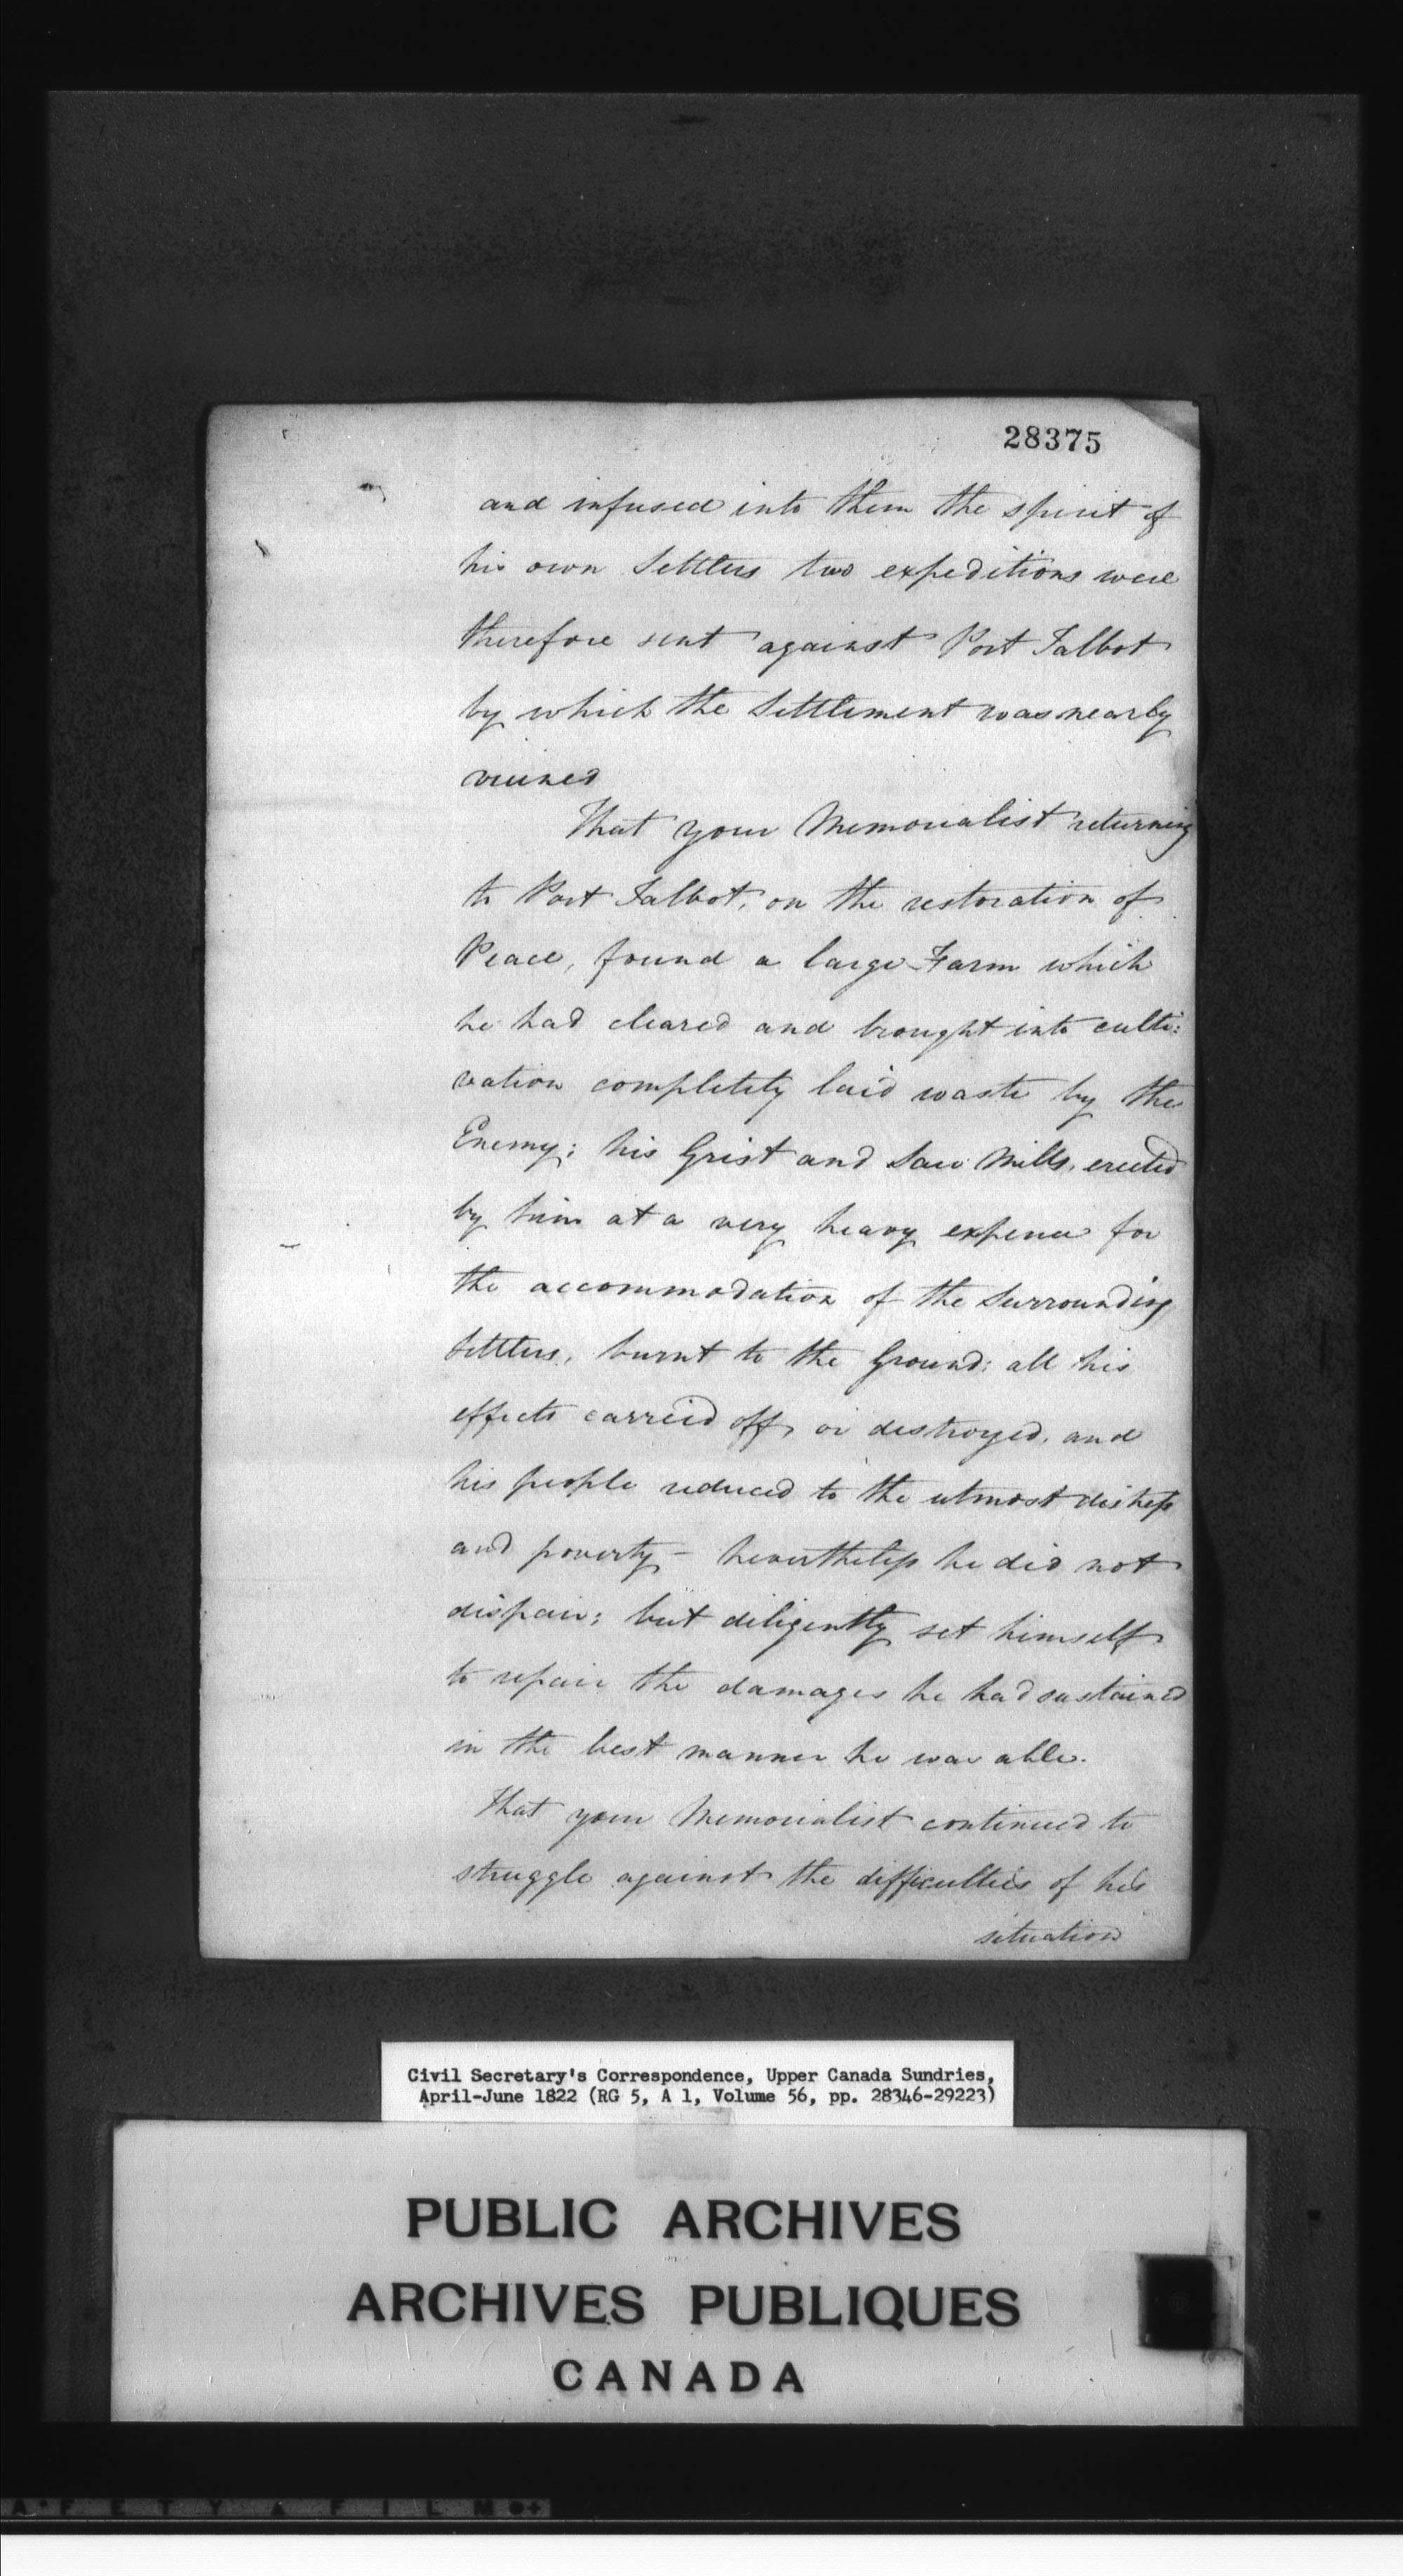 28375
and infused into them the spirit of
his own Settlers two expeditions were
therefore sent against Port Talbot
by which the Settlement was nearly
ruined
That your Memorialist returning
to Port Talbot, on the restoration of
Peace, found a large Farm which
he had cleared and brought into culti:
vation completely laid waste by the
Enemy; his Grist and Saw Mills, erected
by him at a very heavy expence for
the accommodation of the Surrounding
Settlers, burnt to the Ground: all his
effects carreid off or destroyed, and
his people reduced to the utmost distress
and poverty – neverthelss he did not
dispair; but diligently set himself
to repair the damages he had sustained
in the best manner he was able.
That your Memorialist continued to
struggle against the difficulties of his
situation
Civil Secretary's Correspondence, Upper Canada Sundries,
April-June 1822 (RG 5, A 1, Volume 56, pp. 28346-29223)
PUBLIC ARCHIVES
ARCHIVES PUBLIQUES
CANADA
SAFETY FILM